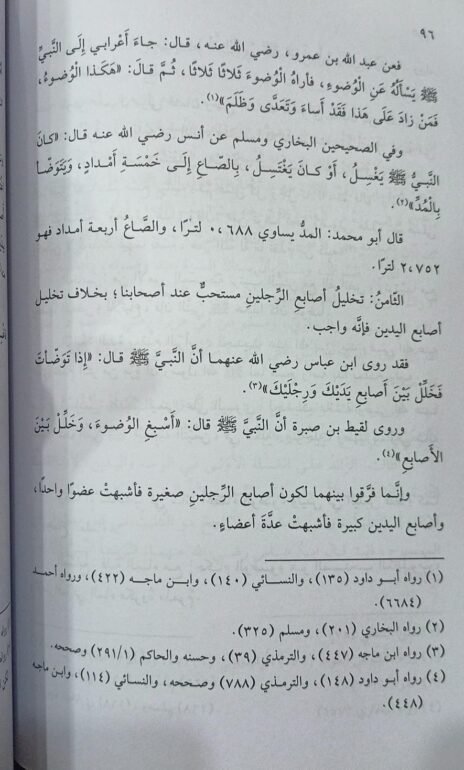 ٩٦
فعن عبد الله بن عمرو، رضي الله عنه، قال: جاءَ أَعْرابي إِلَى النَّبيِّ
ﷺ يَسأَلُهُ عَنِ الْوُضوءِ، فأَراهُ الْوُضوءَ ثَلاثًا ثَلاثًا، ثُمَّ قالَ: «هَكَذا الْوُضوءُ،
فَمَنْ زادَ عَلَى هَذا فَقَدْ أَساءَ وَتَعَدَّى وَظَلَمَ»(١).
وفي الصحيحين البخاري ومسلم عن أنس رضي الله عنه قال: «كانَ
النَّبيُّ ﷺ يَغْسِلُ، أَوْ كانَ يَغْتَسِلُ، بِالصَّاعِ إِلى خَمْسَةِ أَمْدادٍ، وَيَتَوَضَّأُ
بِالْمُدِّ»(٢).
قال أبو محمد: المدُّ يساوي ٠,٦٨٨ لترًا، والصَّاعُ أربعة أمداد فهو
٢,٧٥٢ لترًا.
الثَّامنُ: تخليلُ أصابع الرِّجلينِ مستحبٌّ عند أصحابنا؛ بخلاف تخليل
أصابع اليدين فإنَّه واجب.
فقد روى ابن عباس رضي الله عنهما أنَّ النَّبيَّ ﷺ قال: «إِذا تَوَضَّأتَ
فَخَلِّلْ بَيْنَ أَصابِعِ يَدَيْكَ وَرِجْلَيْكَ»(٣).
وروى لقيط بن صبرة أنَّ النَّبيَّ ﷺ قال: «أَسْبِغِ الْوُضوءَ، وَخَلِّلْ بَيْنَ
الأَصابِعِ»(٤).
وإنَّما فرَّقوا بينهما لكون أصابع الرِّجلينِ صغيرة فأشبهتْ عضوًا واحدًا،
وأصابع اليدين كبيرة فأشبهتْ عدَّةَ أعضاءٍ.
(١) رواه أبو داود (١٣٥)، والنسائي (١٤٠)، وابن ماجه (٤٢٢)، ورواه أحمد
(٦٦٨٤).
(٢) رواه البخاري (٢٠١)، ومسلم (٣٢٥).
(٣) رواه ابن ماجه (٤٤٧)، والترمذي (٣٩)، وحسنه والحاكم (٢٩١/١) وصححه.
(٤) رواه أبو داود (١٤٨)، والترمذي (٧٨٨) وصححه، والنسائي (١١٤)، وابن ماجه
(٤٤٨).